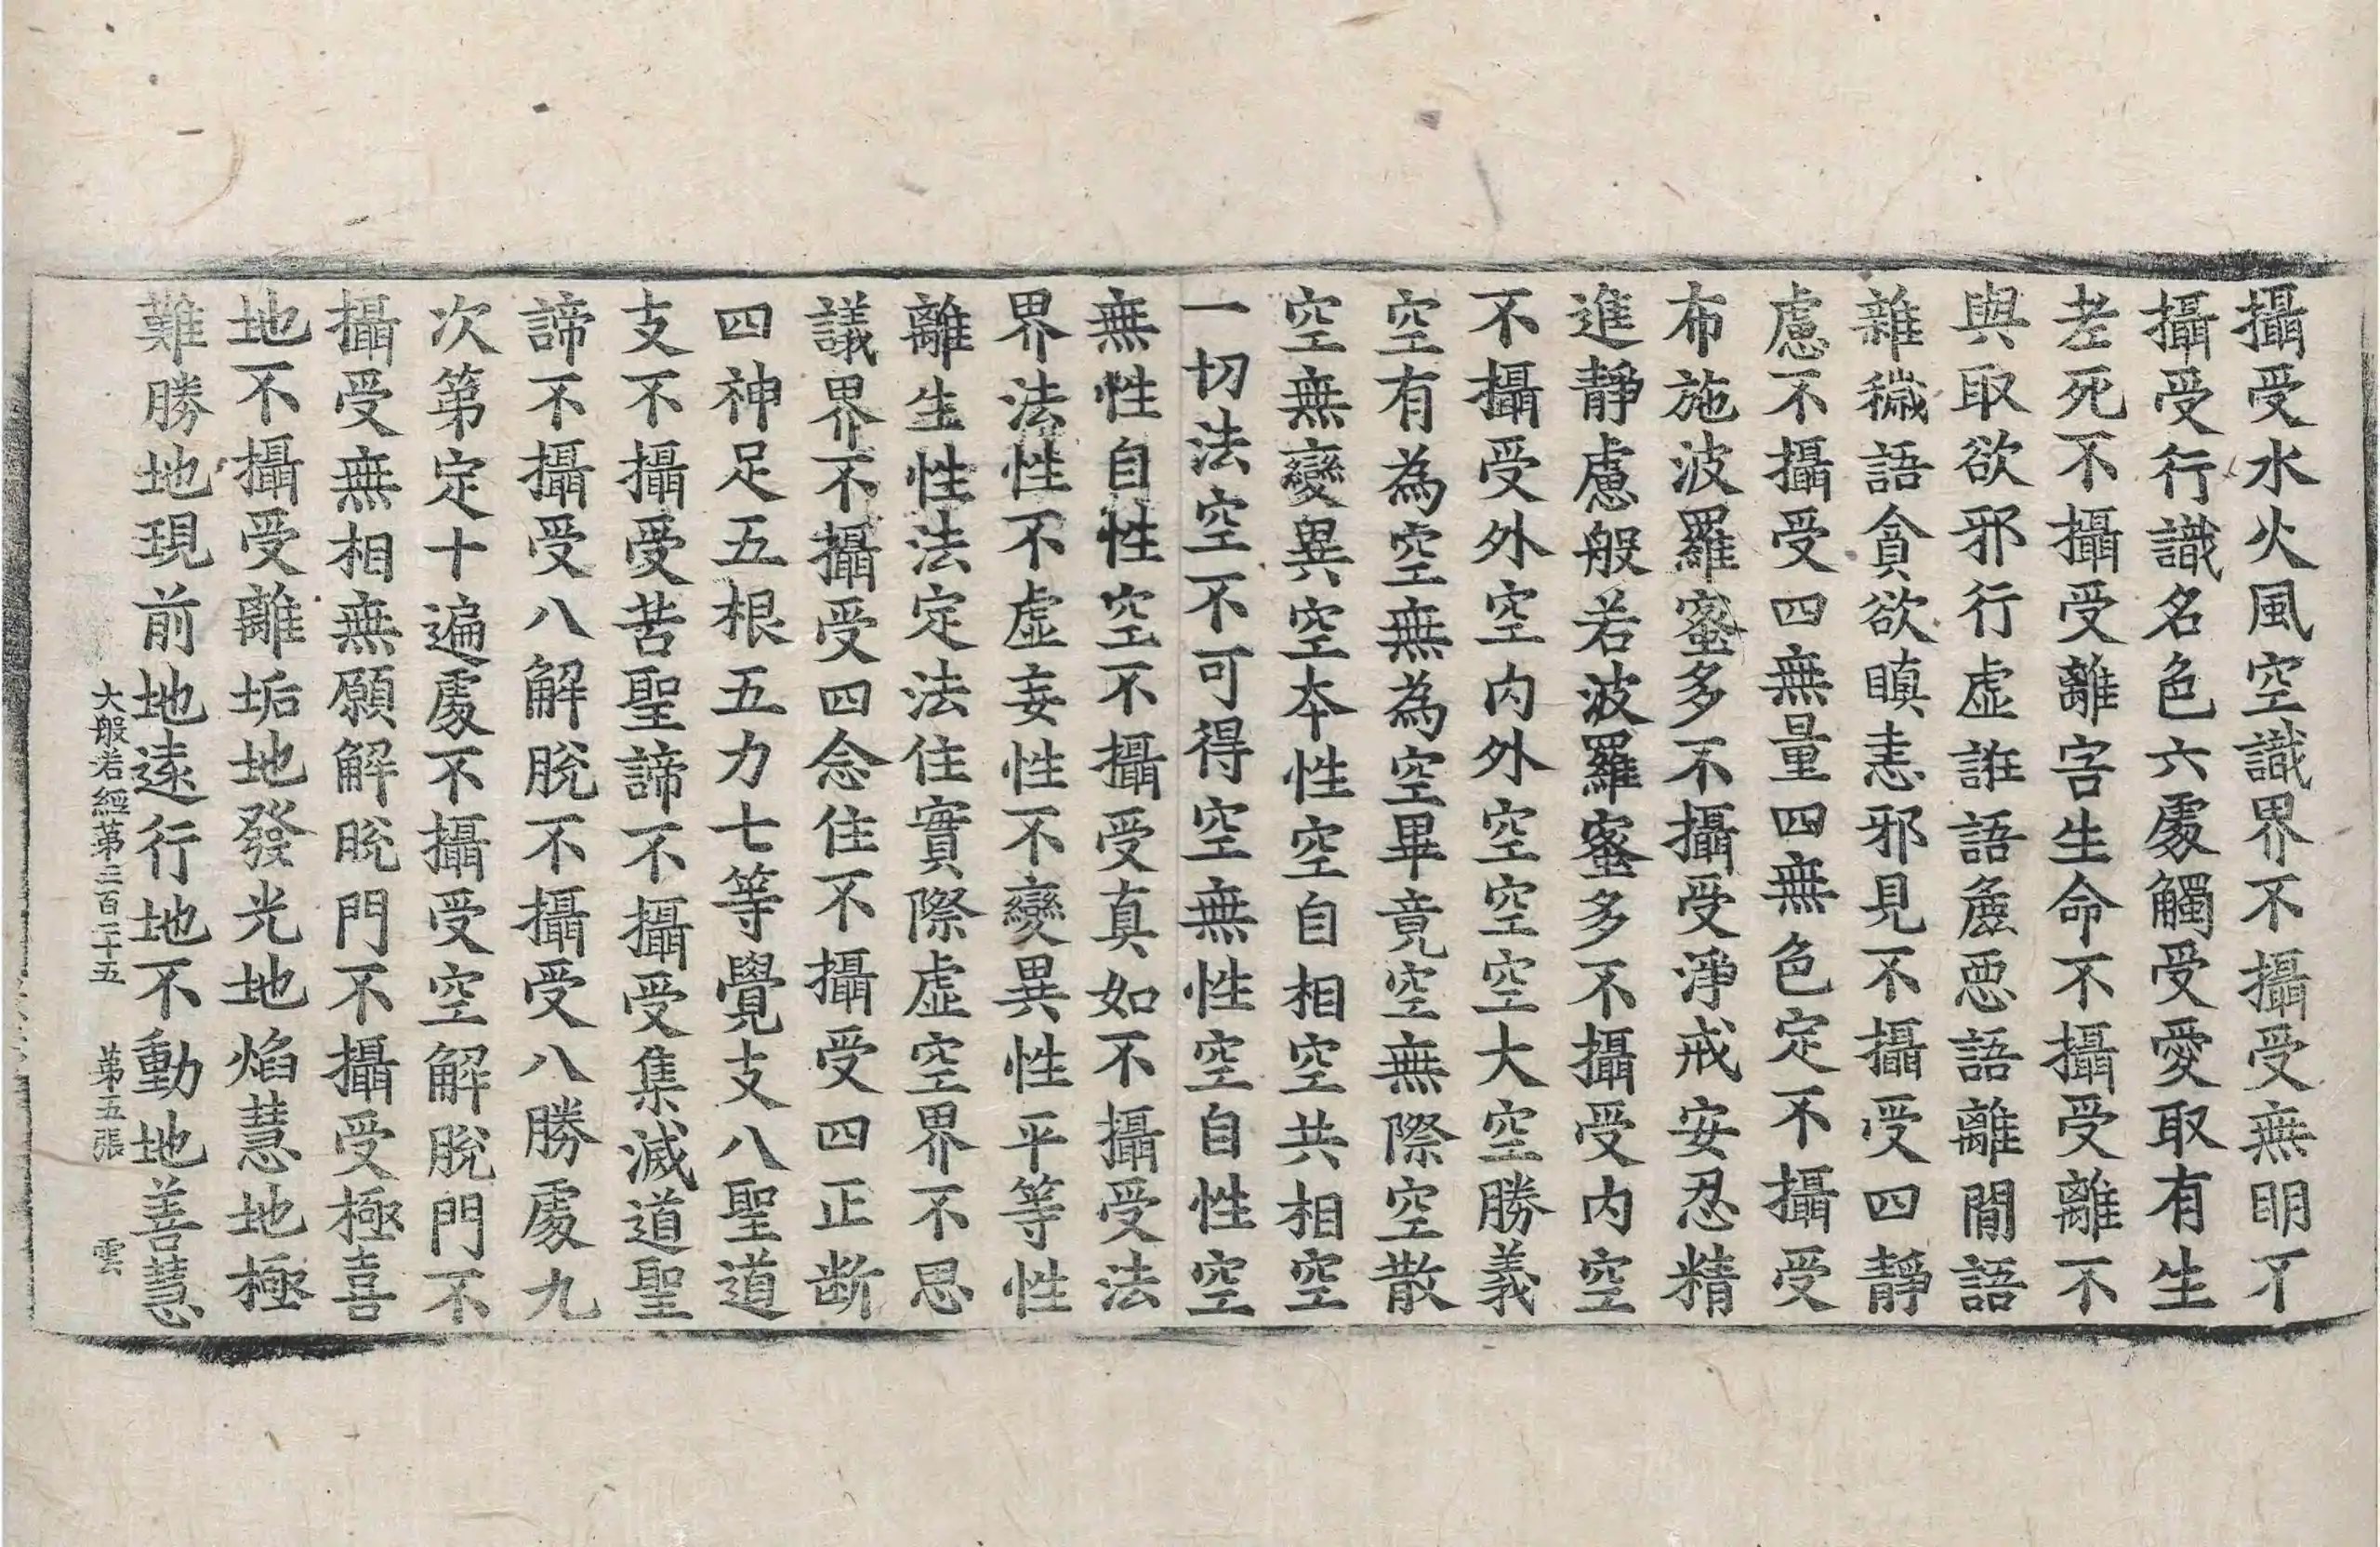 攝受水火風空識界不攝受無明不
攝受行識名色六處觸受愛取有生
老死不攝受離害生命不攝受離不
與取欲邪行虛誑語麁惡語離間語
雜穢語貪欲瞋恚邪見不攝受四靜
慮不攝受四無量四無色定不攝受
布施波羅蜜多不攝受淨戒安忍精
進靜慮般若波羅蜜多不攝受內空
不攝受外空內外空空空大空勝義
空有為空無為空畢竟空無際空散
空無變異空本性空自相空共相空
一切法空不可得空無性空自性空
無性自性空不攝受真如不攝受法
界法性不虛妄性不變異性平等性
離生性法定法住實際虛空界不思
議界不攝受四念住不攝受四正斷
四神足五根五力七等覺支八聖道
支不攝受苦聖諦不攝受集滅道聖
諦不攝受八解脫不攝受八勝處九
次第定十遍處不攝受空解脫門不
攝受無相無願解脫門不攝受極喜
地不攝受離垢地發光地焰慧地極
難勝地現前地遠行地不動地善慧
大般若經第三百二十五 第五張 雲